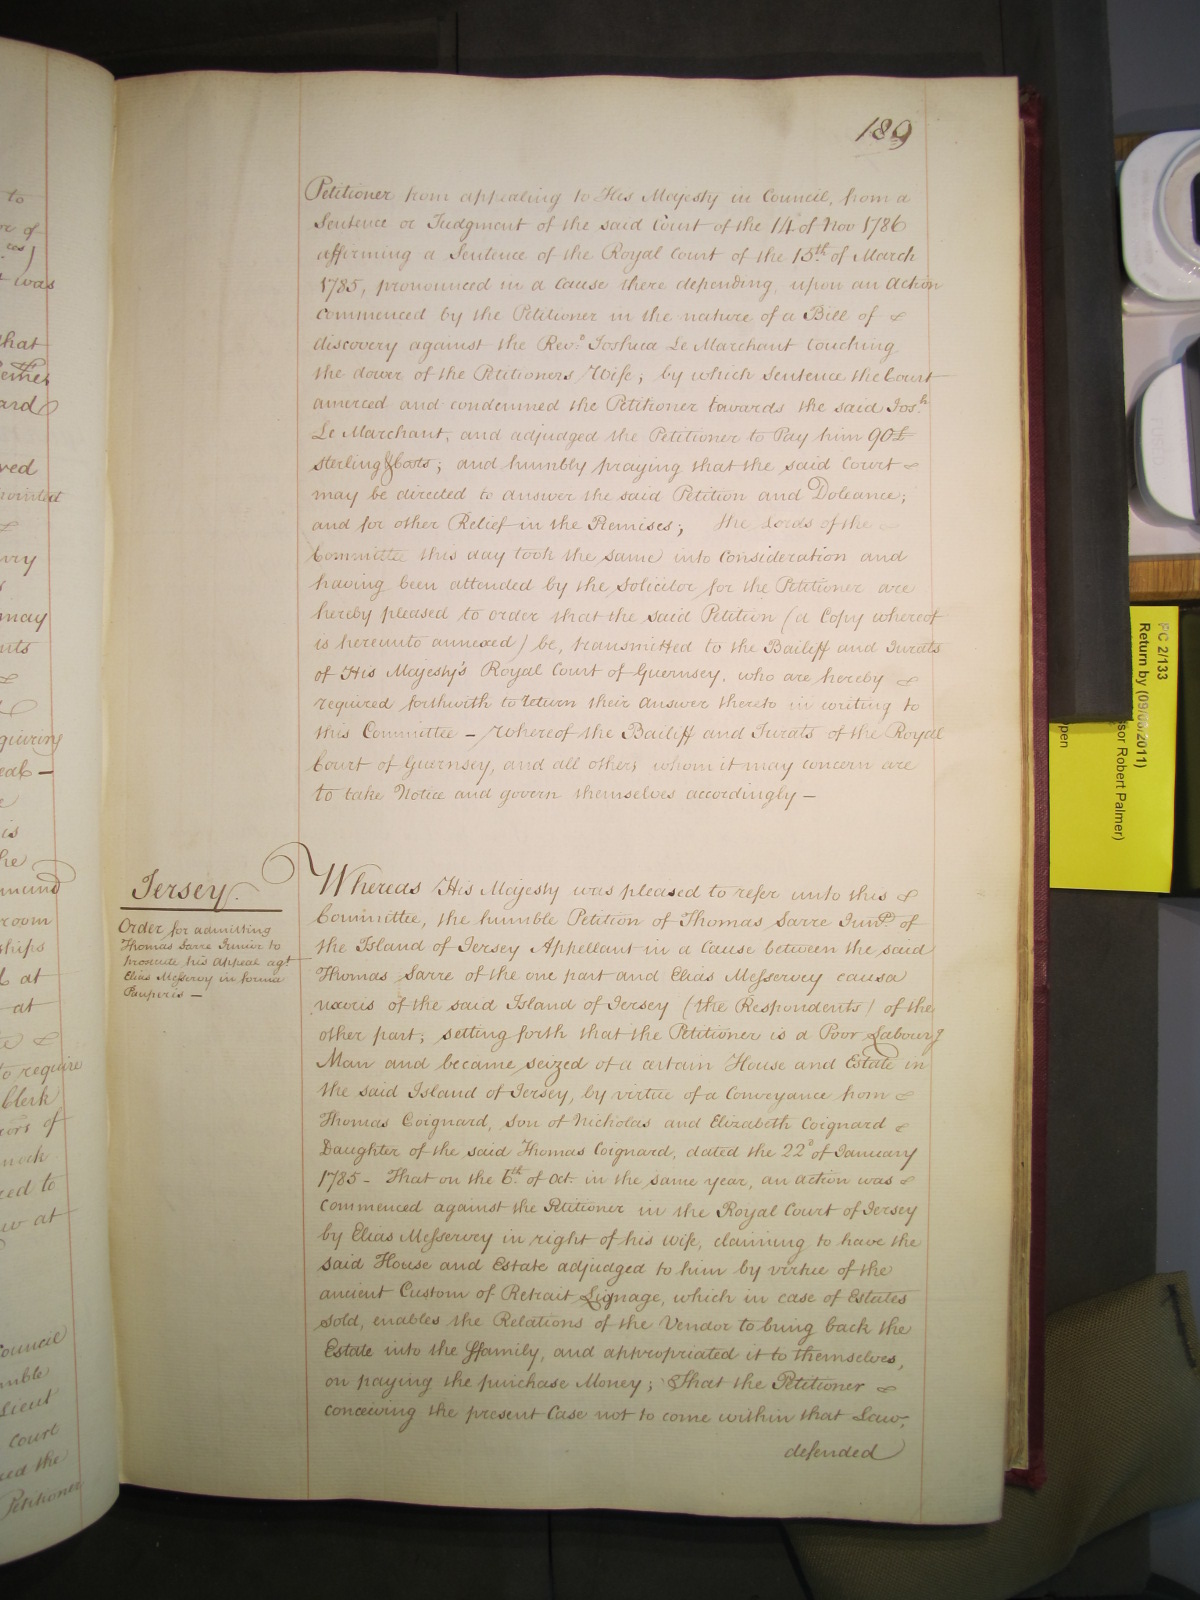 189
Petitioner from appealing to His Majesty in Council, from a
Sentence or Judgment of the said Court of the 14 of Nov 1786
affirming a Sentence of the Royal Court of the 15th of March
1785, pronounced in a Cause there depending, upon an Action
commenced by the Petitioner in the nature of a Bill of &
discovery against the Revd Joshua Le Marchant touching
the dower of the Petitioners Wife; by which Sentence the Court
amerced and condemned the Petitioner towards the said Josh
Le Marchant, and adjudged the Petitioner to Pay him 90£
sterling & Costs; and humbly praying that the said Court &
may be directed to answer the said Petition and Doleance;
and for other Relief in the Premises; The Lords of the &
Committee this day took the same into Consideration and
having been attended by the Solicitor for the Petitioner are
hereby pleased to order that the said Petition (a Copy whereof
is hereunto annexed) be, transmitted to the Bailiff and Jurats
of His Majesty's Royal Court of Guernsey, who are hereby &
required forthwith to return their Answer thereto in writing to
this Committee — Whereof the Bailiff and Jurats of the Royal
Court of Guernsey, and all others whom it may concern are
to take Notice and govern themselves accordingly —
Jersey.
Order for admitting
Thomas Sarre Junior to
prosecute his Appeal agt
Elias Messervey in forma
Pauperis —
Whereas His Majesty was pleased to refer unto this &
Committee, the humble Petition of Thomas Sarre Junr. of
the Island of Jersey Appellant in a Cause between the said
Thomas Sarre of the one part and Elias Messervey causa
uxoris of the said Island of Jersey (the Respondents) of the
other part; setting forth that the Petitioner is a Poor Labourg
Man and became seized of a certain House and Estate in
the said Island of Jersey, by virtue of a Conveyance from &
Thomas Coignard, son of Nicholas and Elizabeth Coignard &
Daughter of the said Thomas Coignard, dated the 22d of January
1785 - That on the 6th of Oct. in the same year, an action was &
commenced against the Petitioner in the Royal Court of Jersey
by Elias Messervey in right of his wife, claiming to have the
said House and Estate adjudged to him by virtue of the
ancient Custom of Retrait Lignage, which in case of Estates
sold, enables the Relations of the Vendor to bring back the
Estate into the ffamily, and appropriated it to themselves,
on paying the purchase Money; That the Petitioner &
conceiving the present Case not to come within that Law,
defended
PC 2/133
Return by (09/ /2011)
ssor Robert Palmer)
pen